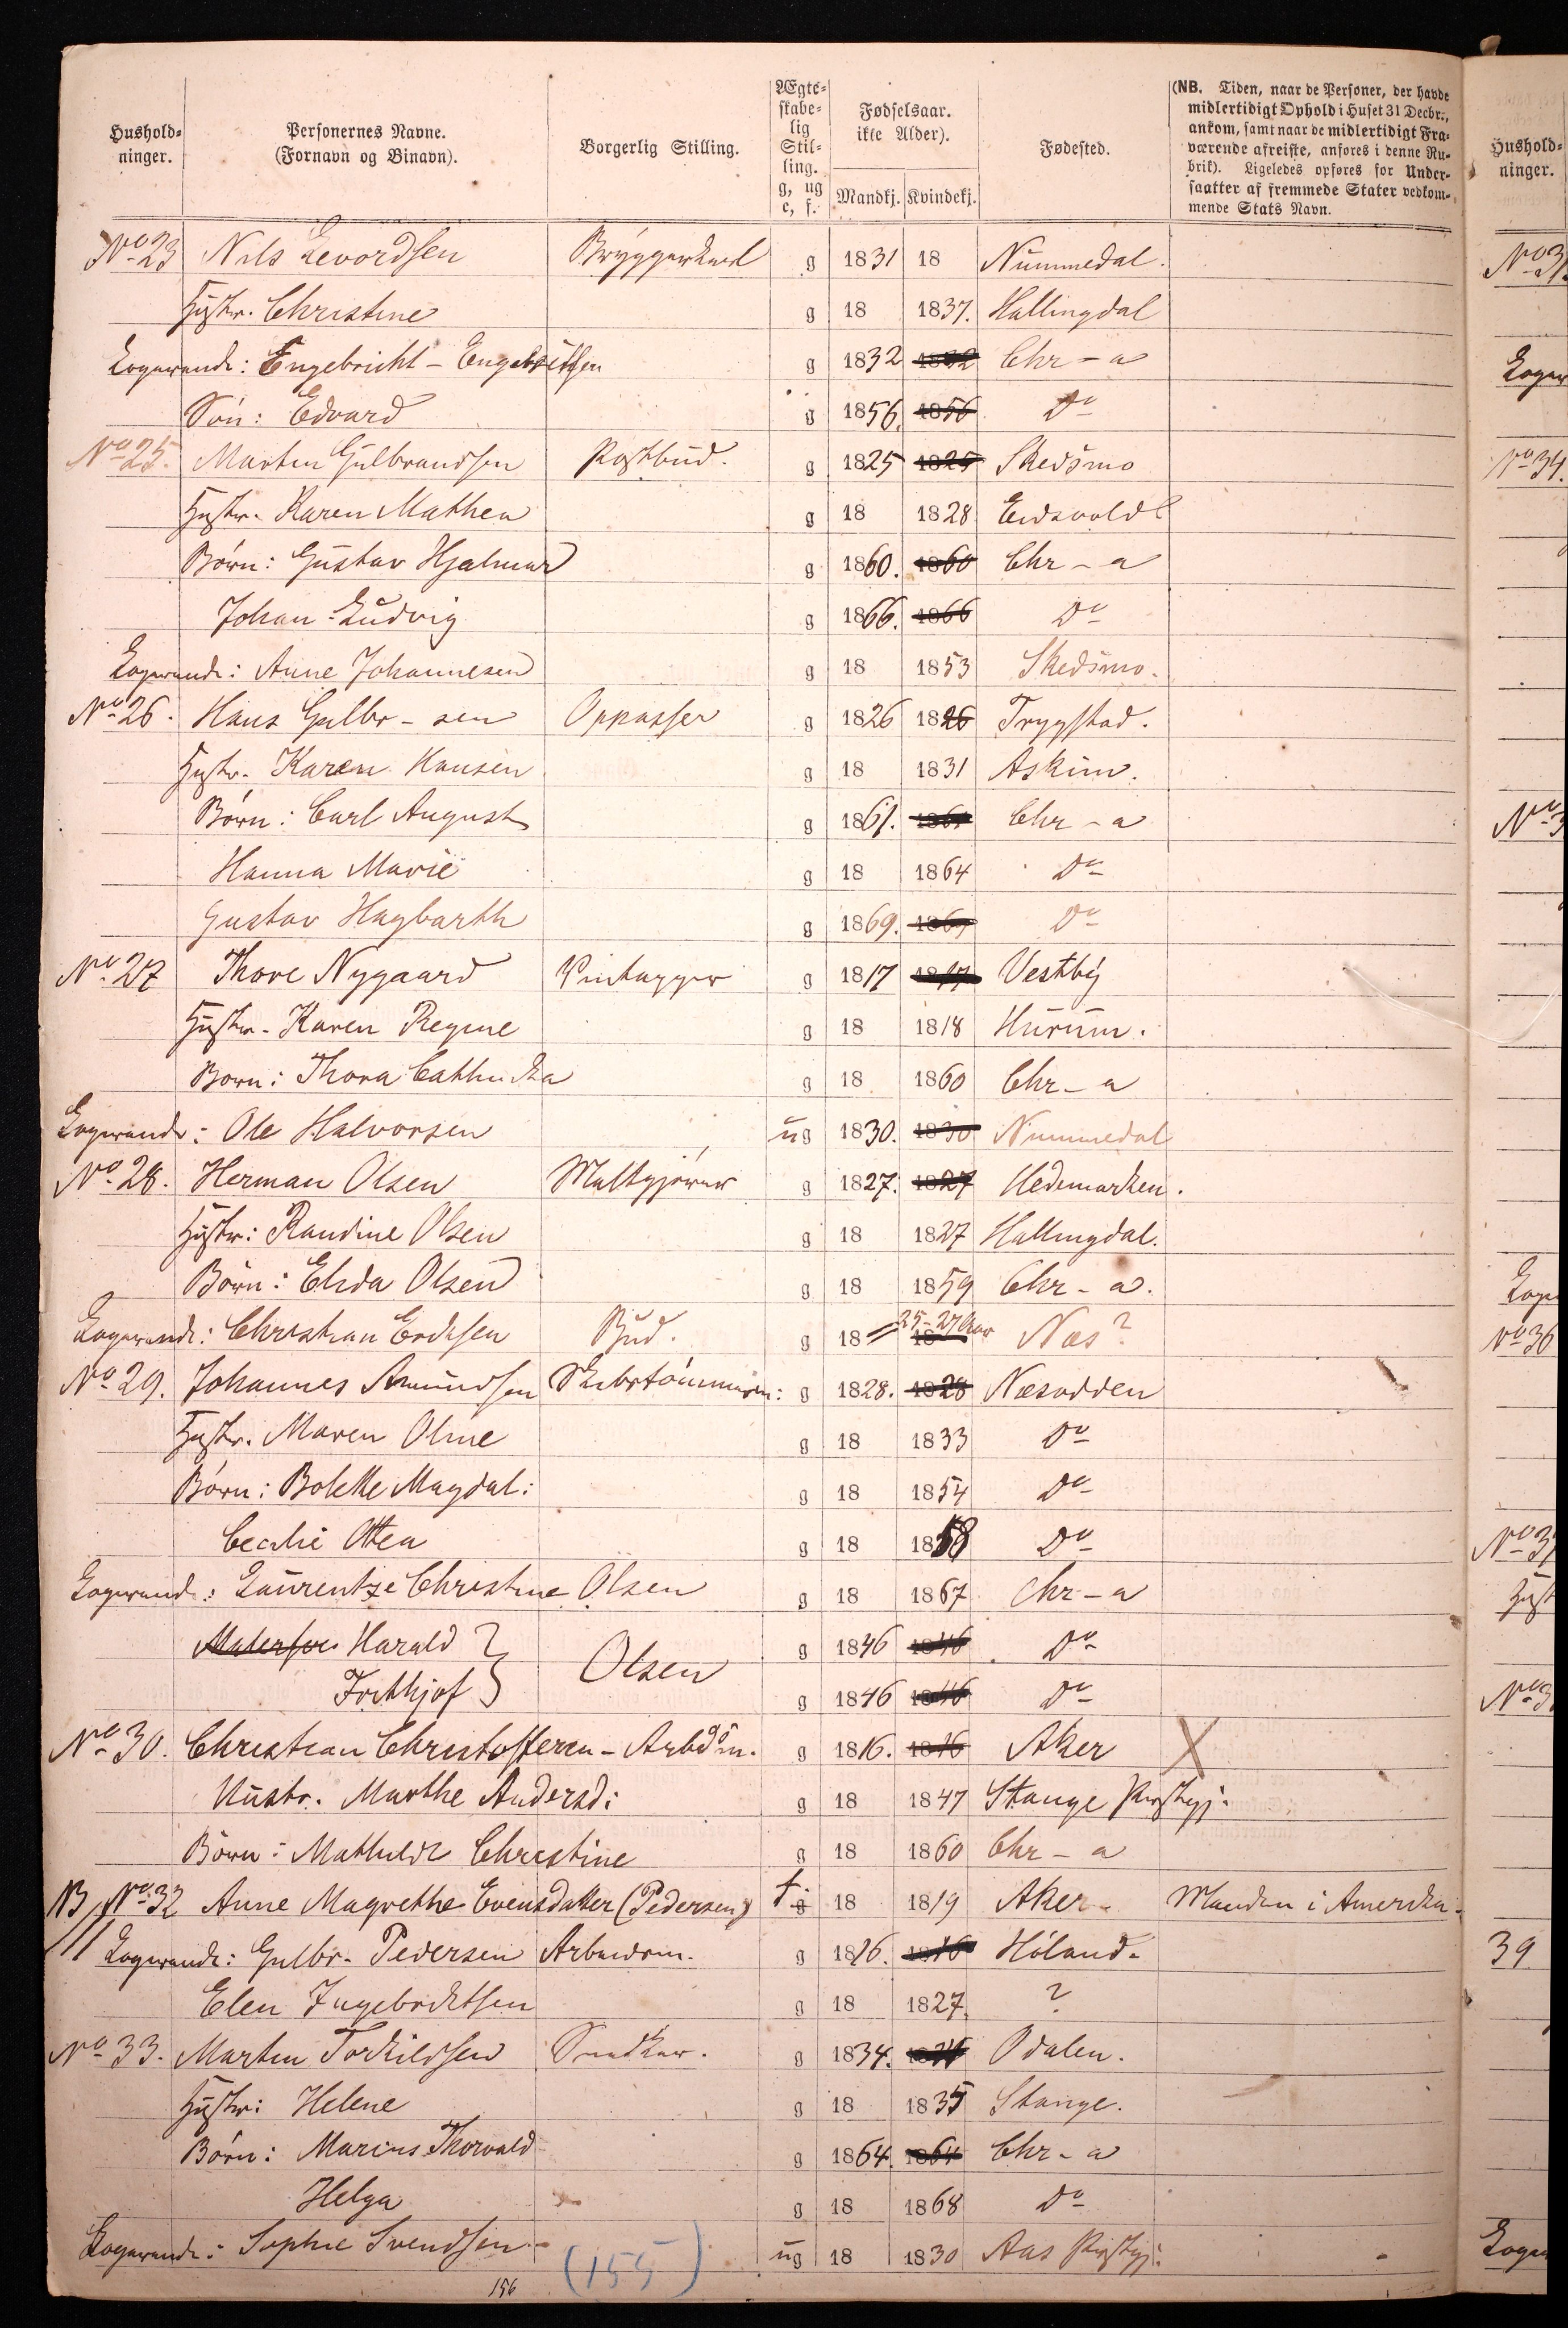 Hushold-
ninger.
Personernes Navne.
(Fornavn og Binavn).
Borgerlig Stilling.
Ægte-
skabe-
lig
Stil-
ling.
g, ug
e, f.
Fødselsaar.
ikke Alder).
Mandkj. Kvindekj.
Fødested.
(NB. Tiden, naar de Personer, der havde
midlertidigt Ophold i Huset 31 Decbr.,
ankom, samt naar de midlertidigt Fra-
værende afreiste, anføres i denne Ru-
brik). Ligeledes opføres for Under-
saatter af fremmede Stater vedkom-
mende Stats Navn.
Hushold-
ninger.
No 23 Nils Levordsen Bryggerkarl g 1831 18 Nummedal.
Hustr. Christine g 18 1837. Hallingdal
Logerende: Engebricht - Engebritsen g 1832 1832 Chr - a
Søn: Edvard g 1856. 1856 Do
No 25. Martin Gulbrandsen Postbud. g 1825 1825 Skedsmo
Hustr. Karen Mathea g 18 1828 Eidsvold
Børn: Gustav Hjalmar g 1860. 1860 Chr - a
Johan Ludvig g 1866. 1866 Do
Logerende: Anne Johannesen g 18 1853 Skedsmo.
No 26. Hans Gulbr - sen Oppasser g 1826 1826 Trygstad.
Hustr. Karen Hansen g 18 1831 Askim.
Børn: Carl August g 1861. 1861 Chr - a
Hanna Marie g 18 1864 Do
Gustav Hagbarth g 1869. 1869 Do
No 27 Thore Nygaard Vintapper g 1817 1817 Vestby
Hustr. Karen Regine g 18 1818 Hurum.
Børn: Thora Cathinka g 18 1860 Chr - a
Logerende: Ole Halvorsen ug 1830. 1830 Nummedal
No 28. Herman Olsen Maltgjører g 1827. 1827 Hedemarken.
Hustr: Randine Olsen g 18 1827 Hallingdal.
Børn: Elida Olsen g 18 1859 Chr - a.
Logerende: Christian Ericksen Bud. g 18 = 18 25-27 Aar Næs?
No 29. Johannes Amundsen Skibstømmerm: g 1828. 1828 Næsodden
Hustr. Maren Oline g 18 1833 Do
Børn: Bolette Magdal: g 18 1854 Do
Cecilie Ottea g 18 1858 Do
Logerend: Laurentze Christine Olsen g 18 1867 Chr - a
Harald } g 1846 1846 Do
Frithjof } Olsen g 1846 1846 Do
No 30. Christian Christoffersen - Arbdsm. g 1816. 1816 Aker X
Hustr. Marthe Andersd: g 18 1847 Stange Prstgj.
Børn: Mathilde Christine g 18 1860 Chr - a
NB No 32 Anne Magrethe Evensdatter (Pedersen) f. g 18 1819 Aker - Manden i Amerika.
Logerende: Gulbr. Pedersen Arbeidsm. g 1816. 1816 Høland.
Elen Ingebrektsen g 18 1827. ?
No 33. Martin Torkildsen Snedker. g 1834. 1834 Odalen.
Hustr: Helene g 18 1835 Stange.
Børn: Marius Thorvald g 1864. 1864 Chr - a
Helga g 18 1868 Do
Logerende: Sophie Svendsen ug 18 1830 Aas Prstgj:
156
(155)
No 34.
No 36
39